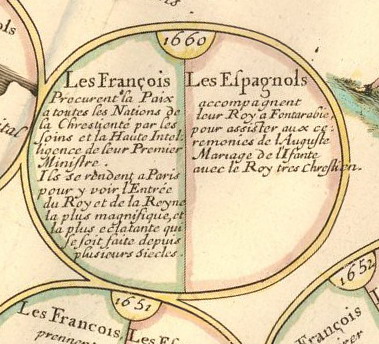 1660
Les François
Procurent la Paix
a toutes les Nations de
la Chrestienté par les
soins et la Haute Intel,
ligence de leur Premier
Ministre.
Ils se rendent a Paris
pour y voir l'Entrée
du Roy et de la Reyne
la plus magnifique, et
la plus eclatante qui
se soit faite depuis
plusieurs siecles.
Les Espagnols
accompagnent
leur Roy a Fontarabie,
pour assister aux ce,
remonies de l'Auguste
Mariage de l'Ifante
avec le Roy tres Chrestien.
1651
Les François
prennent
Les Es
1652
François